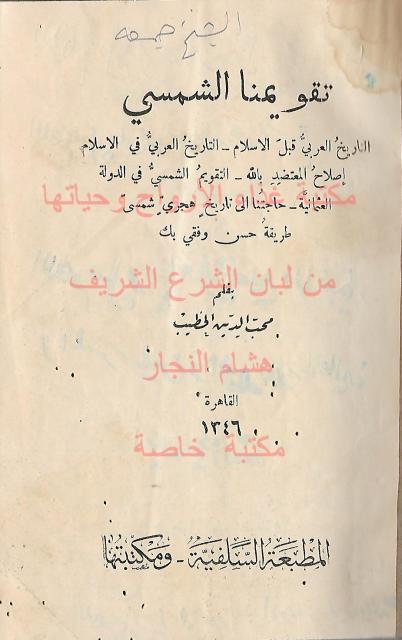 الشيخ جمعه
تقويمنا الشمسي
التاريخُ العربيُّ قبلَ الاسلام ــ التاريخُ العربيُّ في الاسلام
إصلاحُ المعتضدِ بالله ــ التقويمُ الشمسيُّ في الدولة
مكتبة غذاء الأرواح وحياتها
العثمانيَّة ــ حاجتُنا الى تاريخٍ هجريٍّ شمسيٍّ
طريقةُ حسن وفقي بك
من لبان الشرع الشريف
بقلم
محب الدين الخطيب
هشام النجار
القاهرة
١٣٤٦
مكتبة خاصة
المطبَعَة السَّلفيَّة ـ ومكتبتها